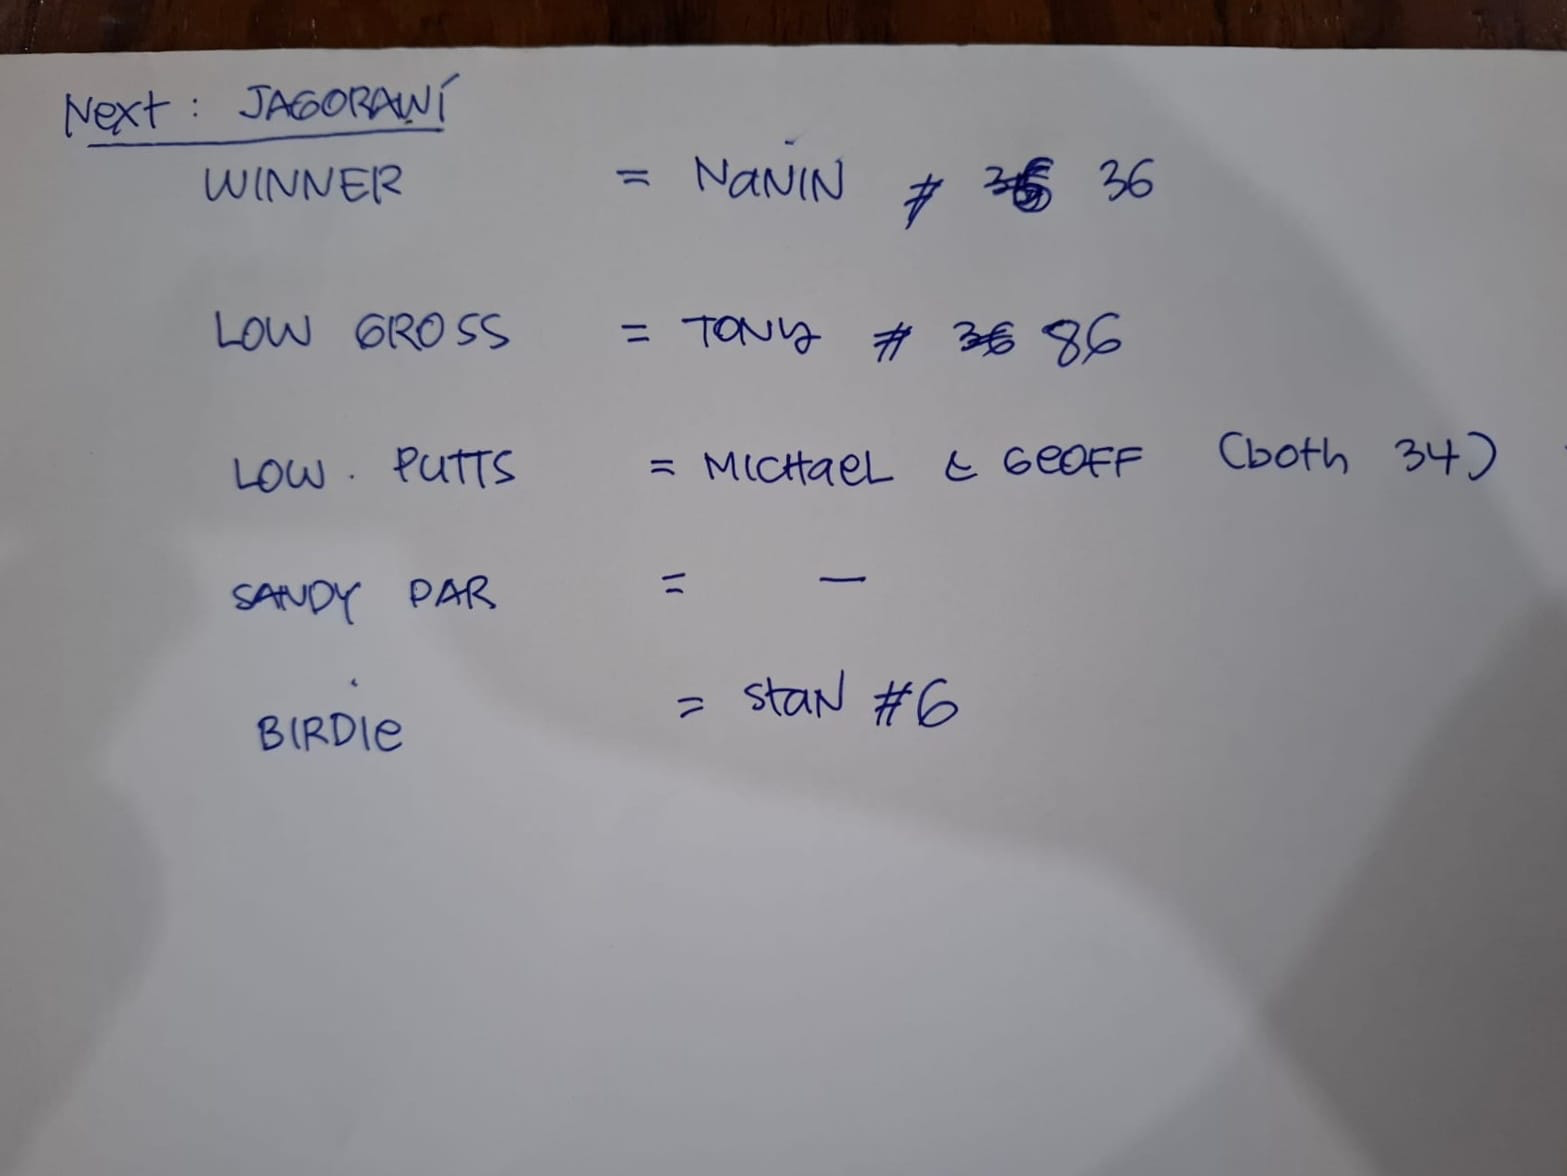 Next : JAGORAWI
WINNER = NaNIN # 36
LOW GROSS = TONY # 36 86
LOW . PUTTS = MICHaeL & GeOFF (both 34)
SANDY PAR = —
BIRDIe = StaN #6